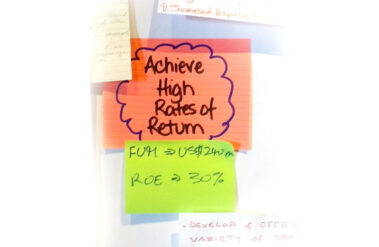 Increased
Achieve
High
Rates of
Return
FUM ⇒ US$240m
ROE ⇒ 30%
- DEVELOP & OFFER
VARIETY OF